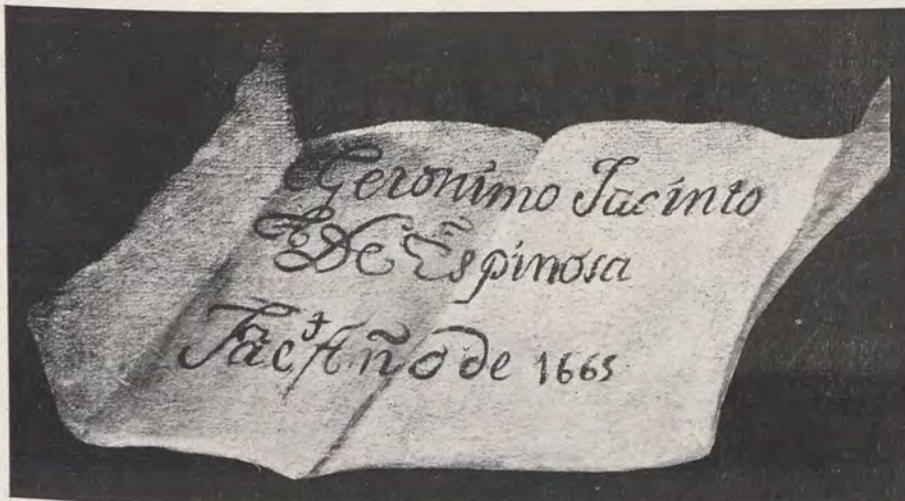 Geronimo Jacinto
De Espinosa
Fac^t Año de 1665